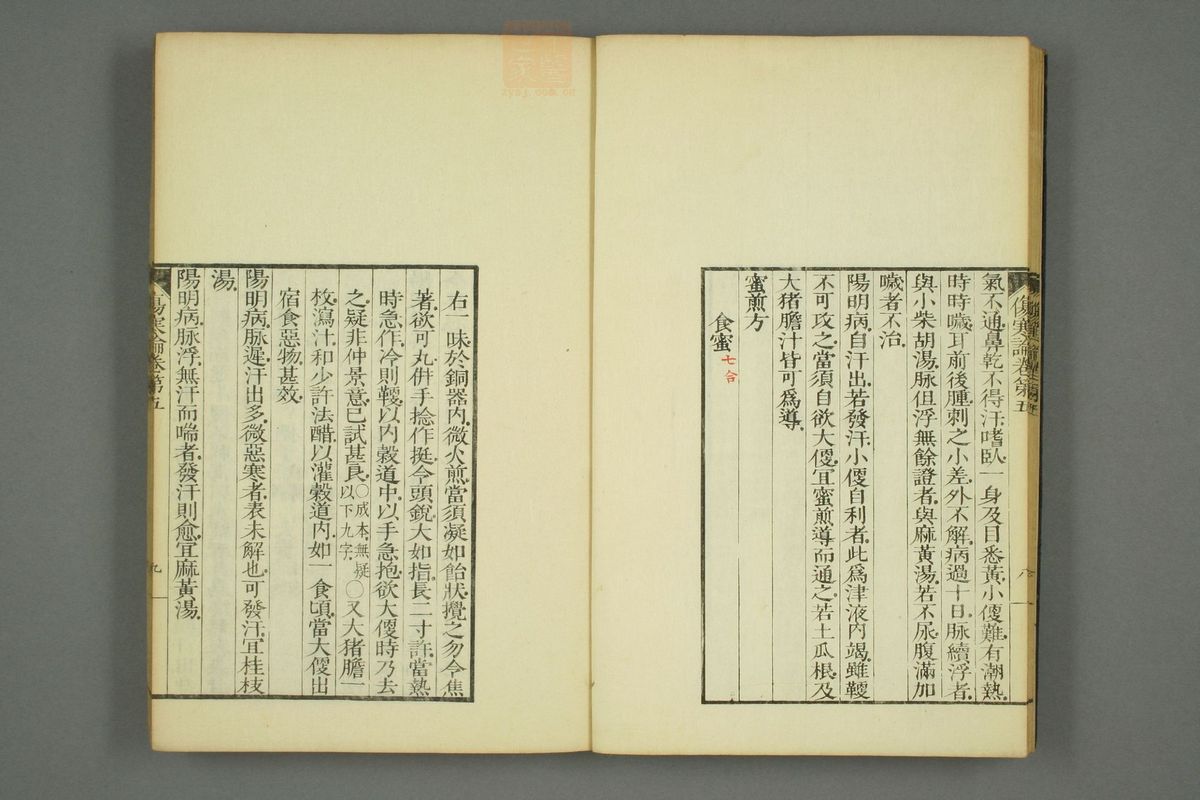 傷寒論卷第五
八
氣不通鼻乾不得汗嗜臥一身及目悉黃小便難有潮熱
時時噦耳前後腫刺之小差外不解病過十日脉續浮者
與小柴胡湯脉但浮無餘證者與麻黃湯若不尿腹滿加
噦者不治
陽明病自汗出若發汗小便自利者此爲津液内竭雖鞕
不可攻之當須自欲大便宜蜜煎導而通之若土瓜根及
大猪膽汁皆可爲導
蜜煎方
食蜜七合
右一味於銅器内微火煎當須凝如飴狀攪之勿令焦
著欲可丸併手捻作挺令頭銳大如指長二寸許當熱
時急作冷則鞕以内穀道中以手急抱欲大便時乃去
之疑非仲景意已試甚良〇成本無疑以下九字〇又大猪膽一
枚瀉汁和少許法醋以灌穀道内如一食頃當大便出
宿食惡物甚效
陽明病脉遲汗出多微惡寒者表未解也可發汗宜桂枝
湯
陽明病脉浮無汗而喘者發汗則愈宜麻黃湯
傷寒論卷第五
九
zysj.com.cn